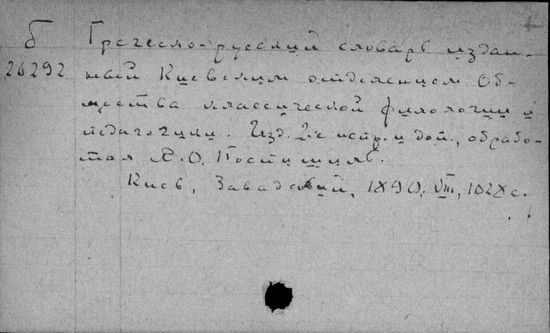 Б Греческо-русский словарь издан-
26292 ный Киевским отделением Об-
щества классической филологии и
педагогики. Изд. 2е испр. и доп., обрабо-
тал А.О. Поспишиль.
Киев, Завадский, 1890. VIII, 1028 с.